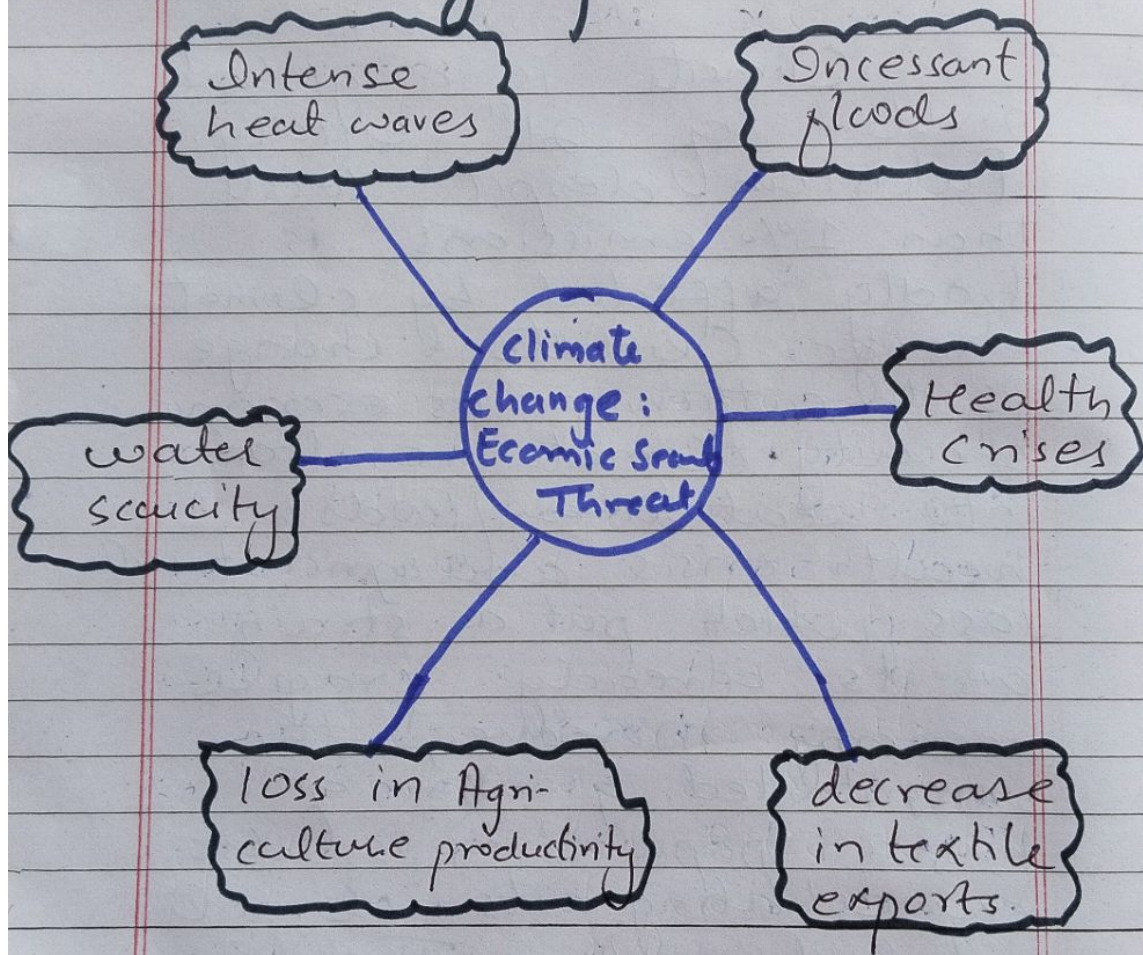 Intense
heat waves
Incessant
floods
climate
change:
Ecomic
Threat
Health
crises
water
scarcity
loss in Agri-
culture productivity
decrease
in textile
exports.